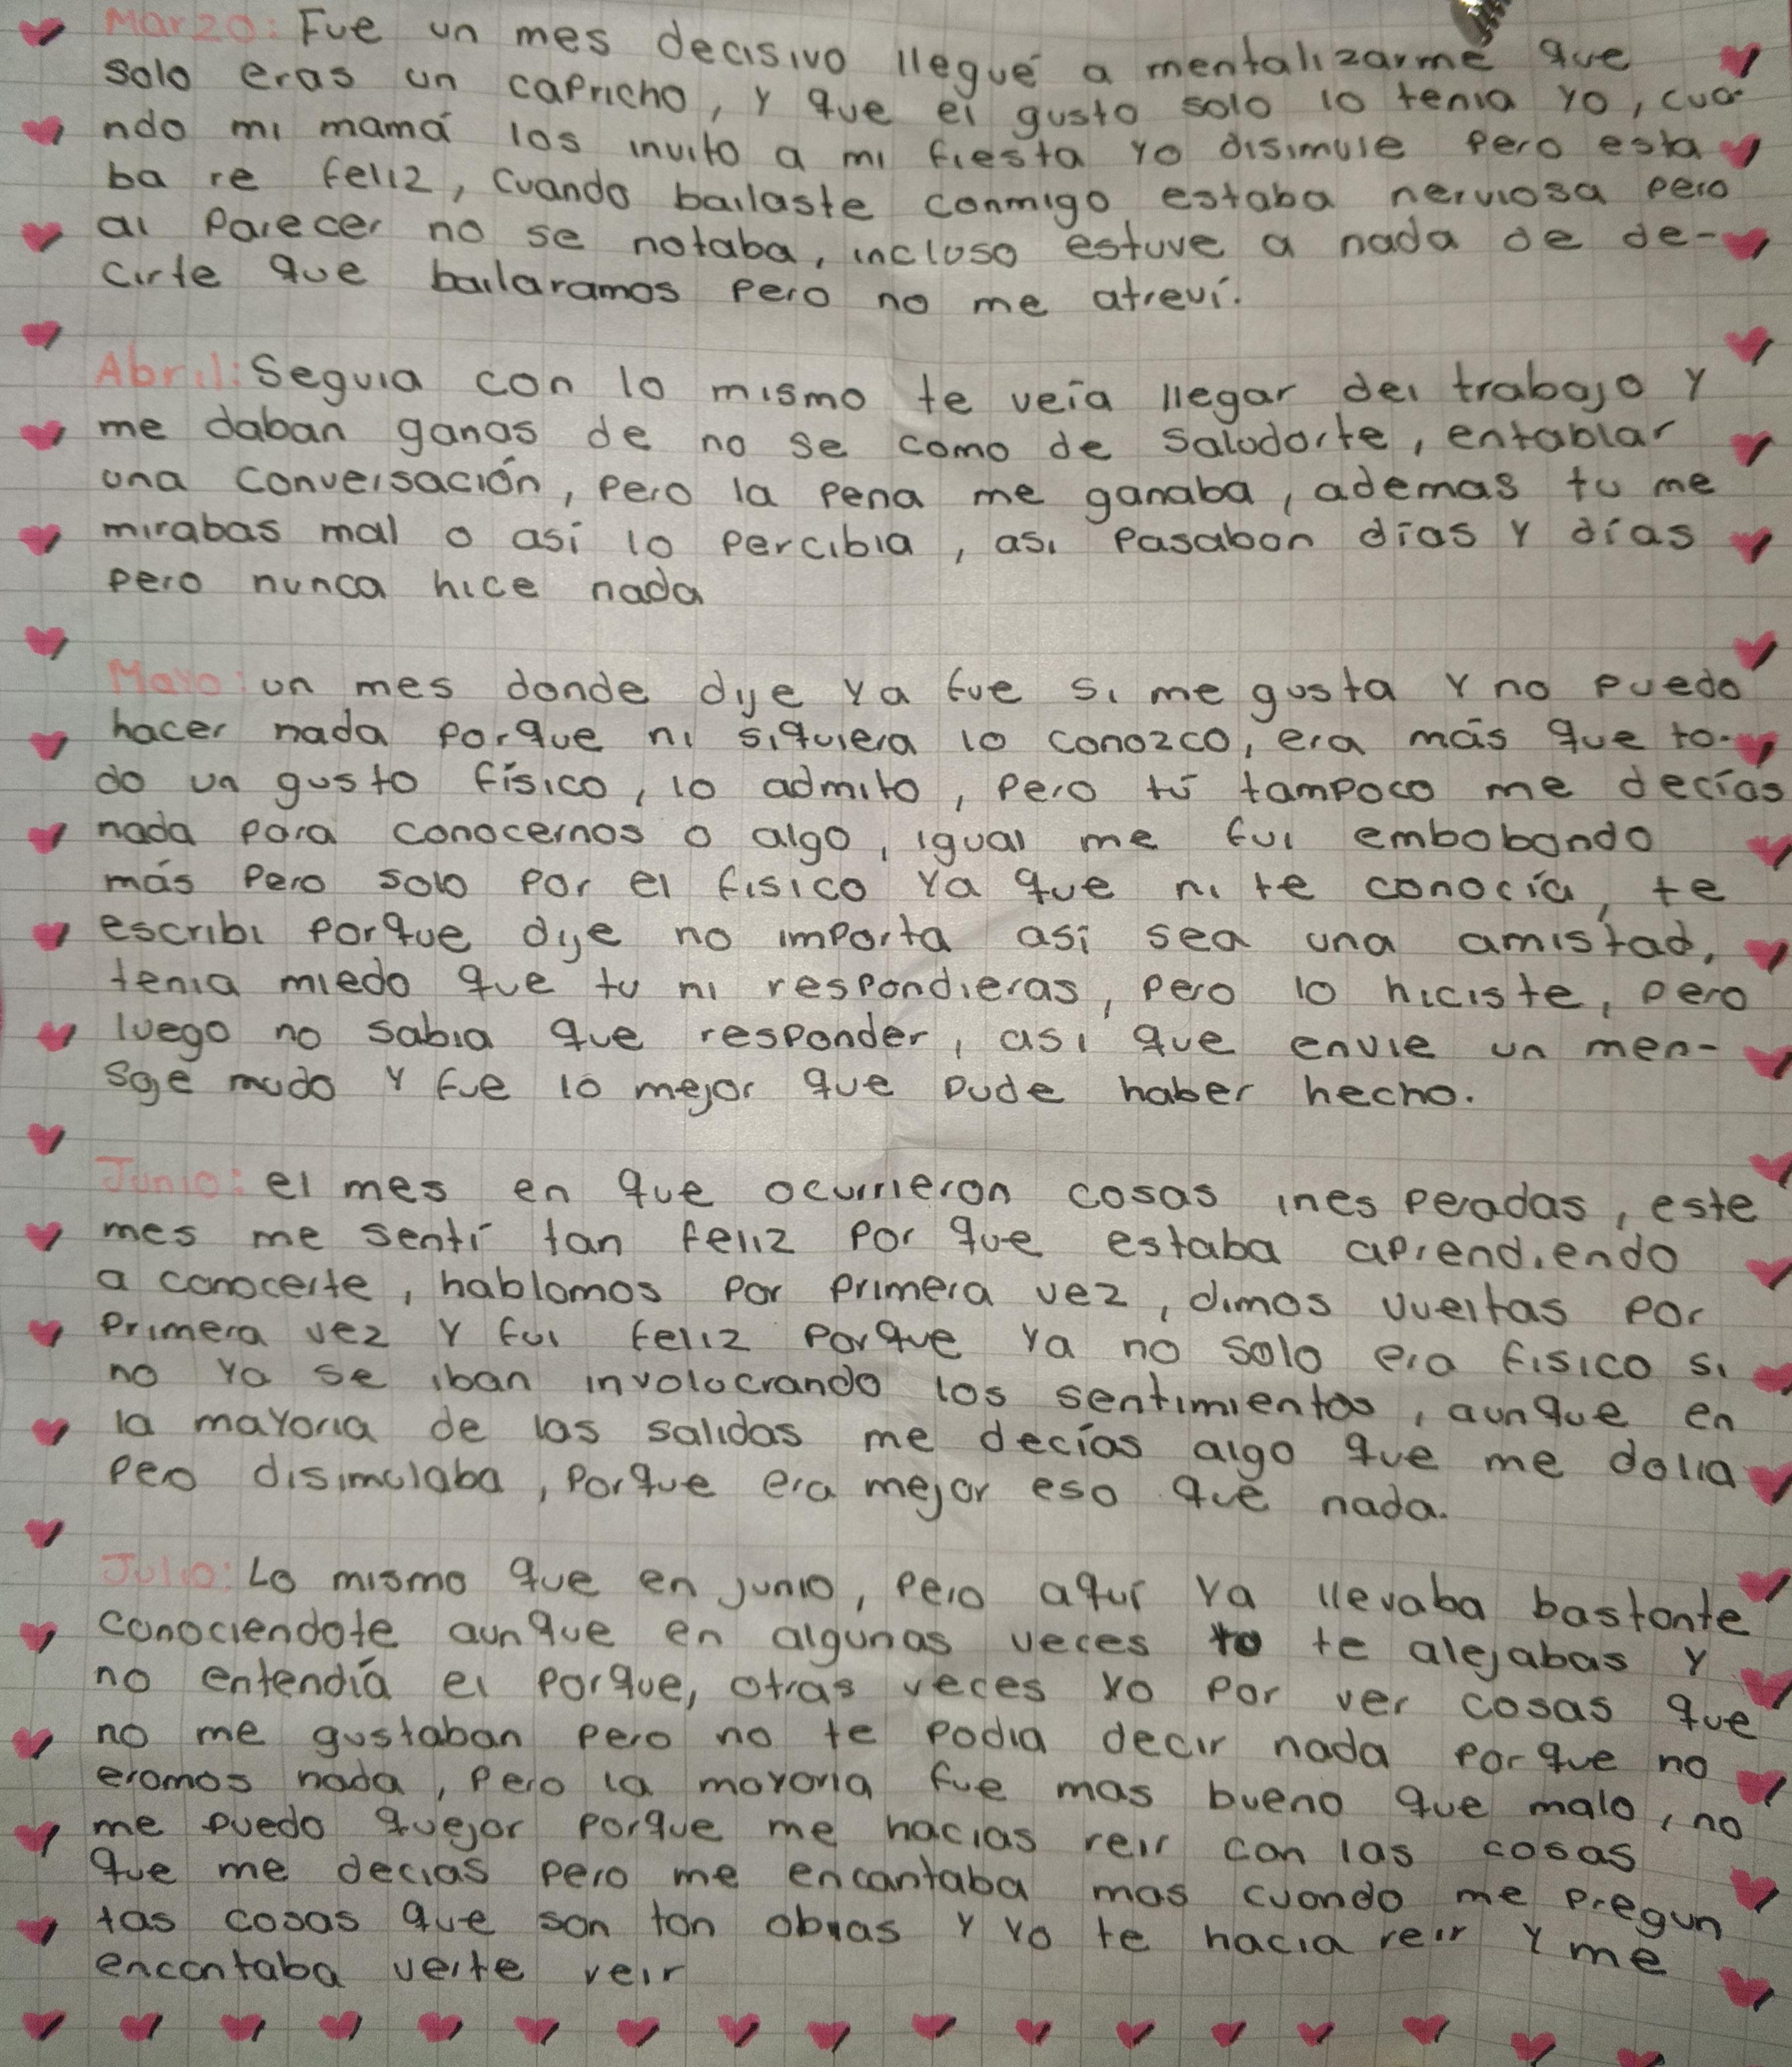 Marzo: Fue un mes decisivo llegué a mentalizarme que
solo eras un capricho, y que el gusto solo lo tenia yo, cua-
ndo mi mamá los invito a mi fiesta yo disimule pero esta
ba re feliz, cuando bailaste conmigo estaba nerviosa pero
al parecer no se notaba, incluso estuve a nada de de-
cirte que bailaramos pero no me atreví.
Abril: Seguia con lo mismo te veía llegar del trabajo y
me daban ganas de no se como de saludarte, entablar
una conversación, pero la pena me ganaba, ademas tu me
mirabas mal o así lo percibia, asi pasaban días y días
pero nunca hice nada
Mayo: un mes donde dije ya fue si me gusta y no puedo
hacer nada porque ni siquiera lo conozco, era más que to-
do un gusto físico, lo admito, pero tú tampoco me decías
nada para conocernos o algo, igual me fui embobando
más pero solo por el fisico ya que ni te conocía, te
escribi porque dije no importa así sea una amistad,
tenia miedo que tu ni respondieras, pero lo hiciste, pero
luego no sabia que responder, asi que envie un men-
saje mudo y fue lo mejor que pude haber hecho.
Junio: el mes en que ocurrieron cosas ines peradas, este
mes me sentí tan feliz por que estaba aprendiendo
a conocerte, hablamos por primera vez, dimos vueltas por
primera vez y fui feliz porque ya no solo era fisico si
no ya se iban involucrando los sentimientos, aunque en
la mayoria de las salidas me decías algo que me dolia
pero disimulaba, porque era mejor eso que nada.
Julio: Lo mismo que en junio, pero aquí ya llevaba bastante
conociendote aunque en algunas veces tu te alejabas y
no entendía el porque, otras veces yo por ver cosas que
no me gustaban pero no te podia decir nada porque no
eramos nada, pero la mayoria fue mas bueno que malo, no
me puedo quejar porque me hacias reir con las cosas
que me decias pero me encantaba mas cuando me pregun
tas cosas que son tan obvias y yo te hacia reir y me
encantaba verte reir